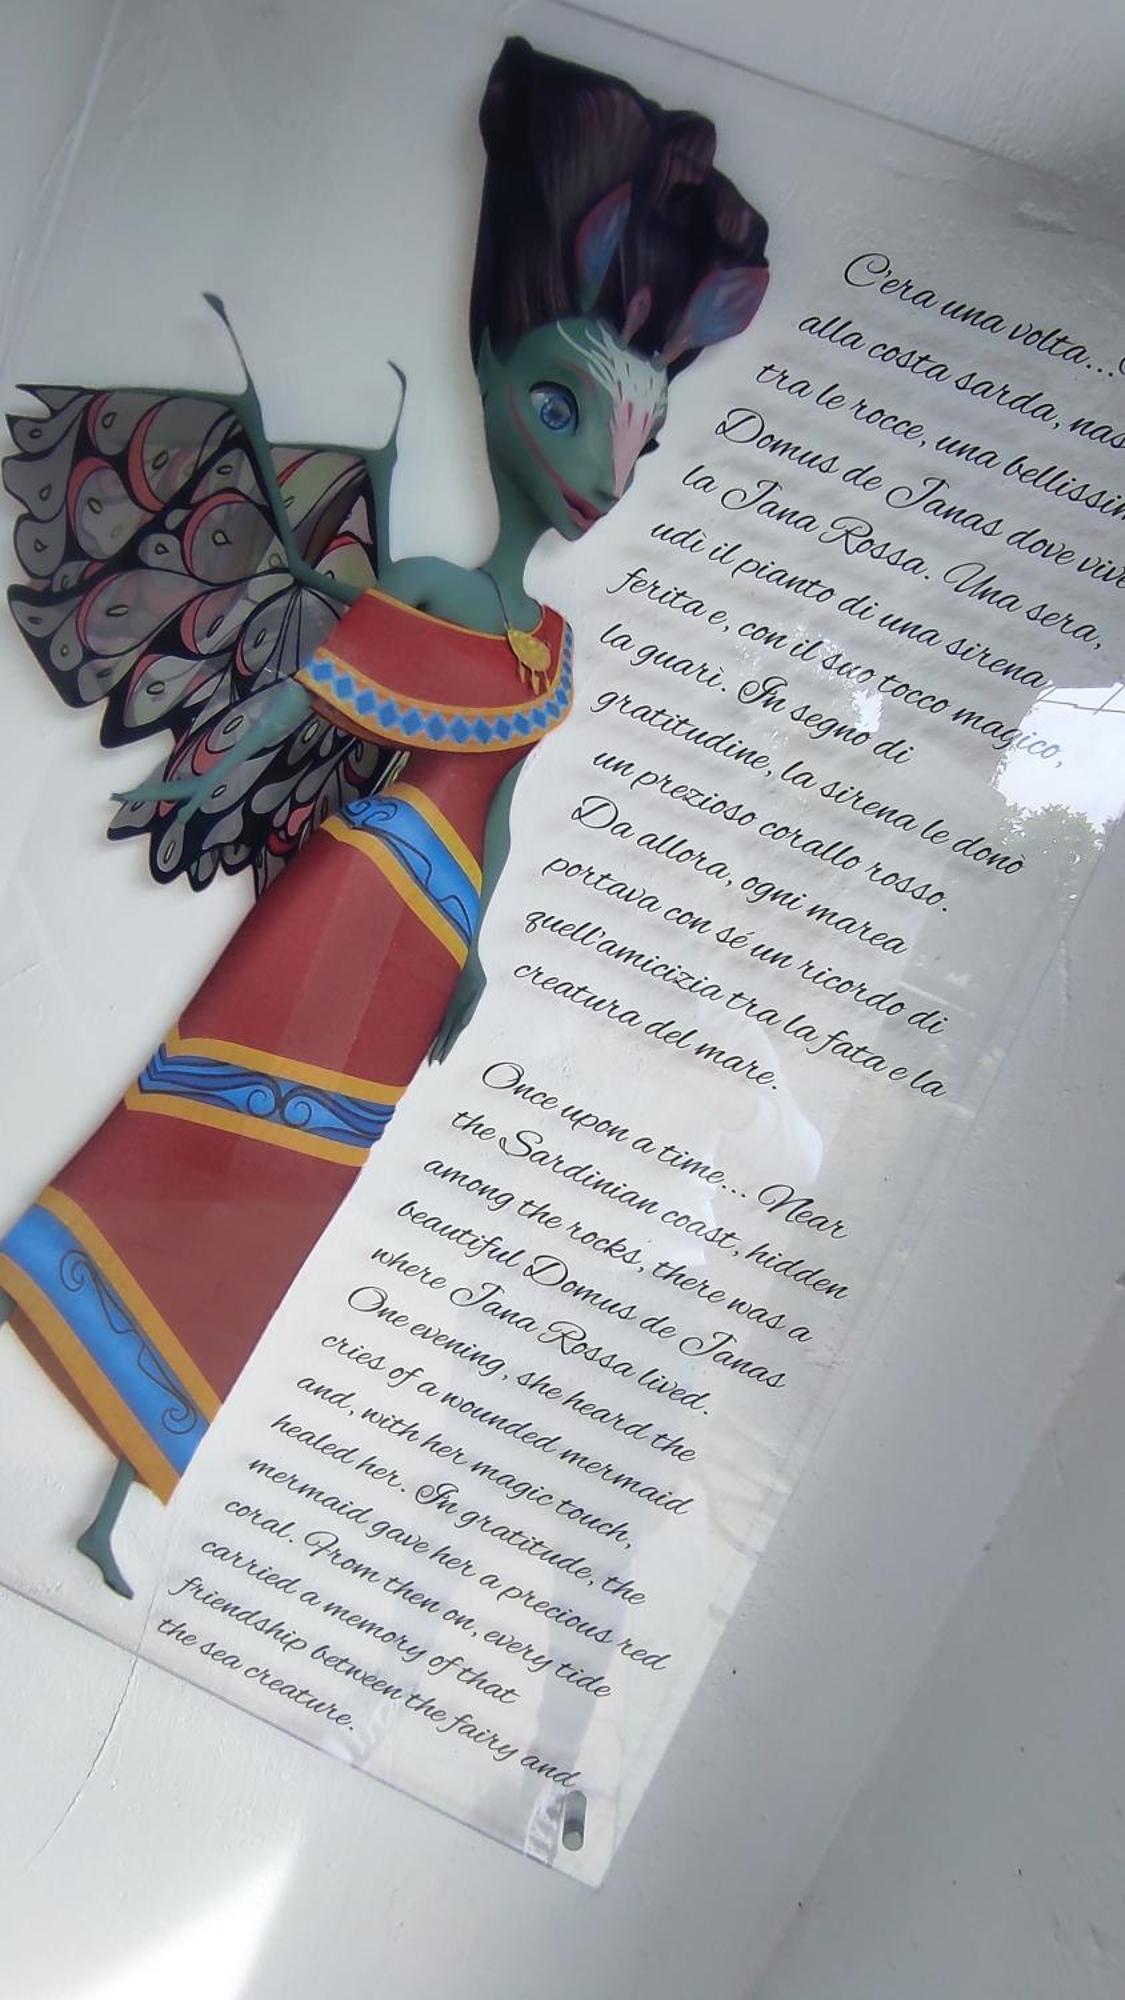 C'era una volta...
alla costa sarda,
tra le rocce, una
Domus de Janas dove
la Jana Rossa. Una sera,
udì il pianto di una sirena
ferita e, con il suo tocco magico,
la guarì. In segno di
gratitudine, la sirena le donò
un prezioso corallo rosso.
Da allora, ogni marea
portava con sé un ricordo di
quell'amicizia tra la fata e la
creatura del mare.
Once upon a time... Near
the Sardinian coast, hidden
among the rocks, there was a
beautiful Domus de Janas
where Jana Rossa lived.
One evening, she heard the
cries of a wounded mermaid
and, with her magic touch,
healed her. In gratitude, the
mermaid gave her a precious red
coral. From then on, every tide
carried a memory of that
friendship between the fairy and
the sea creature.